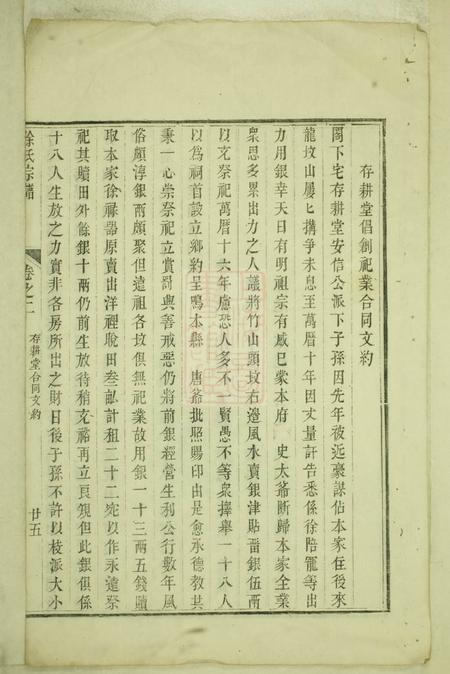 存耕堂倡創祀業合同文約
閣下宅存耕堂安信公派下子孫因先年被近豪謀佔本家住後來
龍坟山屢匕搆爭未息至萬曆十年因丈量訐告悉係徐陪寵等出
力用銀幸天日有明祖宗有感已蒙本府 史太爺斷歸本家全業
衆思多累出力之人議將竹山頭坟右邉風水賣銀津貼畱銀伍兩
以充祭祀萬曆十六年慮恐人多不一賢愚不等衆擇舉一十八人
以爲祠首設立鄉約呈鳴本縣 唐爺批照賜印由是愈承德敎共
秉一心崇祭祀立賞罰與善戒惡仍將前銀經營生利公行數年風
俗頗淳銀兩頗聚但遠祖各坟俱無祀業故用銀一十三兩五錢贖
取本家徐祿噐原賣出洋裡晚田叁畝計租二十二砣以作永遠祭
祀其贖田外餘銀十兩仍前生放待稍充裕再立良規但此銀俱係
十八人生放之力實非各房所出之財日後子孫不許以枝派大小
徐氏宗譜
卷之二
存耕堂合同文約
廿五